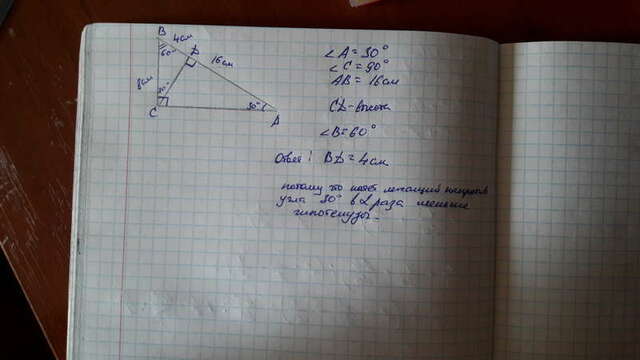 B 4см D
60°
16см
8см
30°
C
30°
A
∠A = 30°
∠C = 90°
AB = 16см
CD - высота
∠B = 60°
Ответ: BD = 4см
потому что катет лежащий напротив
угла 30° в 2 раза меньше
гипотенузы.